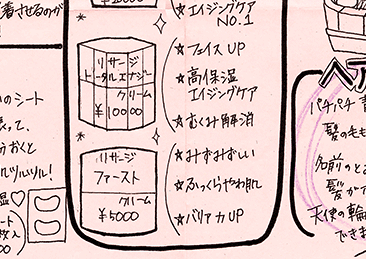 着させるのが
!
¥10000
★エイジングケア
NO.1
リサージ
トータルエナジー
クリーム
¥10000
★フェイスUP
★高保湿
エイジングケア
★むくみ解消
リサージ
ファースト
クリーム
¥5000
★みずみずしい
★ふっくらやわ肌
★バリア力UP
のシート
って、
うおくと
ルツルツル!
湿♡
ート
枚入
パチパチ
髪のも
名前のと
髪が
天使の輪
できま